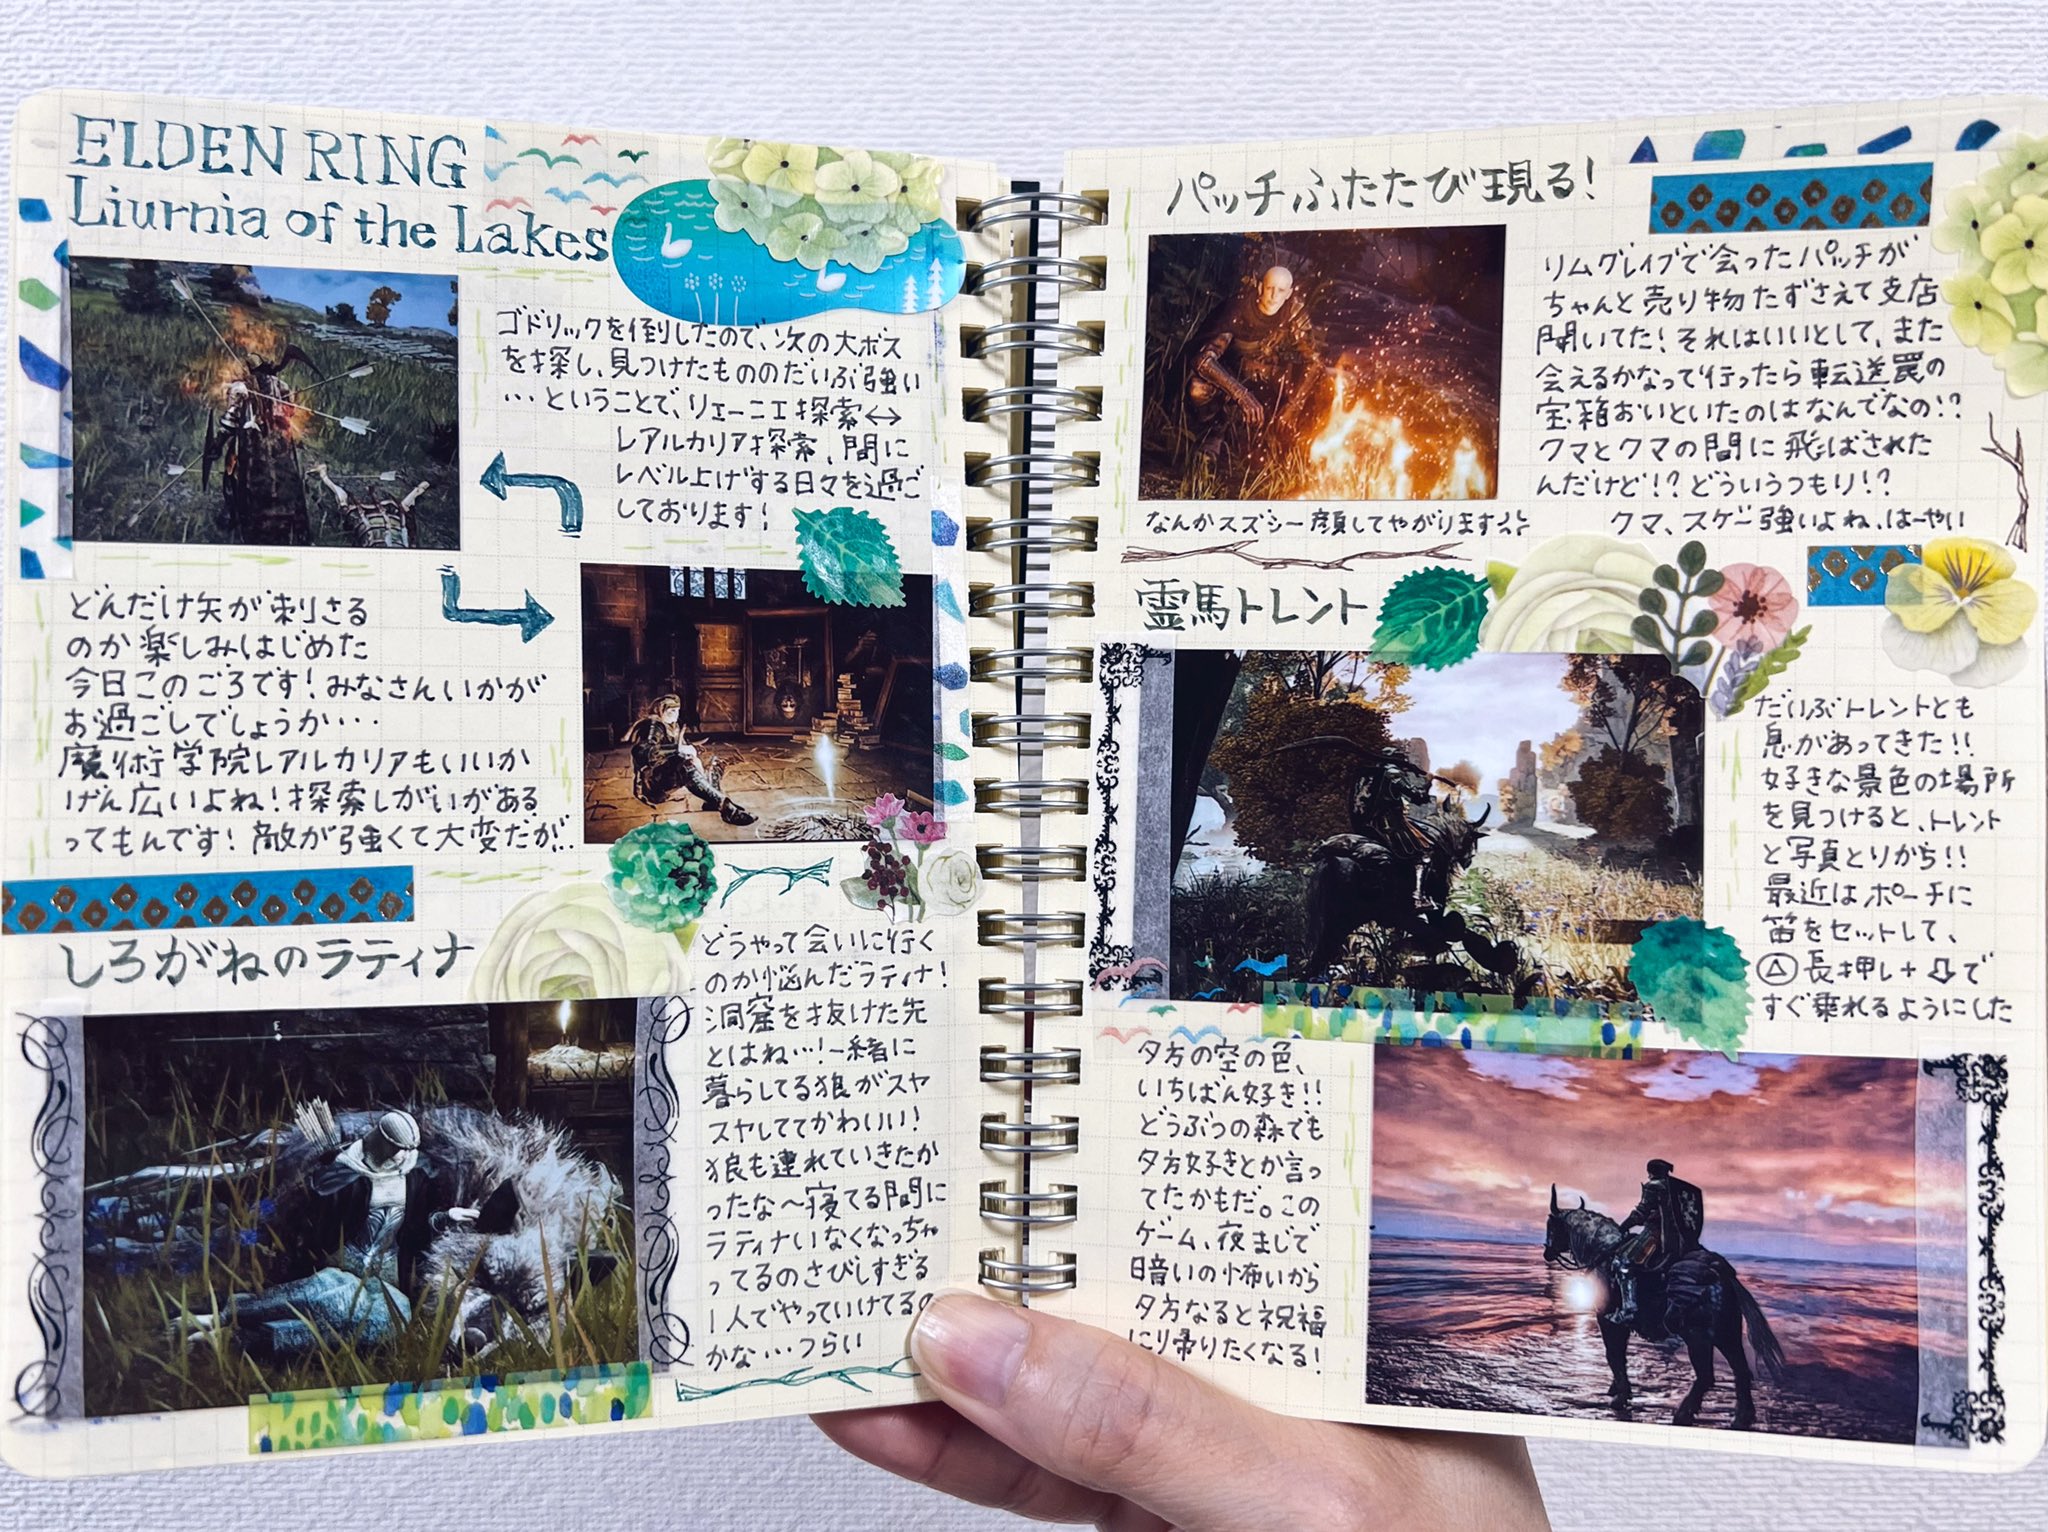 ELDEN RING
Liurnia of the Lakes
ゴドリックを倒したので、次の大ボス
を探し、見つけたもののだいぶ強い
…ということで、リエーニエ探索↔
レアルカリア探索、間に
レベル上げする日々を過ご
しております!
どんだけ矢が刺さる
のか楽しみはじめた
今日このごろです!みなさんいかが
お過ごしでしょうか・・・
魔術学院レアルカリアもいいか
げん広いよね!探索しがいがある
ってもんです!敵が強くて大変だが…
しろがねのラティナ
E
どうやって会いに行く
のか悩んだラティナ!
洞窟を抜けた先
とはね…!一緒に
暮らしてる狼がスヤ
スヤしててかわいい!
狼も連れていきたか
ったな〜寝てる間に
ラティナいなくなっちゃ
ってるのさびしすぎる
1人でやっていけてるの
かな…つらい
パッチふたたび現る!
リムグレイブで会ったパッチが
ちゃんと売り物たずさえて支店
開いてた!それはいいとして、また
会えるかなって行ったら転送罠の
宝箱おいといたのはなんでなの!?
クマとクマの間に飛ばされた
んだけど!?どういうつもり!?
クマ、スゲー強いよね、はーやい
なんかスズシー顔してやがります
霊馬トレント
だいぶトレントとも
息があってきた!!
好きな景色の場所
を見つけると、トレント
と写真とりがち!!
最近はポーチに
笛をセットして、
△長押し+⇩で
すぐ乗れるようにした
夕方の空の色、
いちばん好き!!
どうぶつの森でも
夕方好きとか言っ
てたかもだ。この
ゲーム、夜まじで
暗いの怖いから
夕方なると祝福
に帰りたくなる!